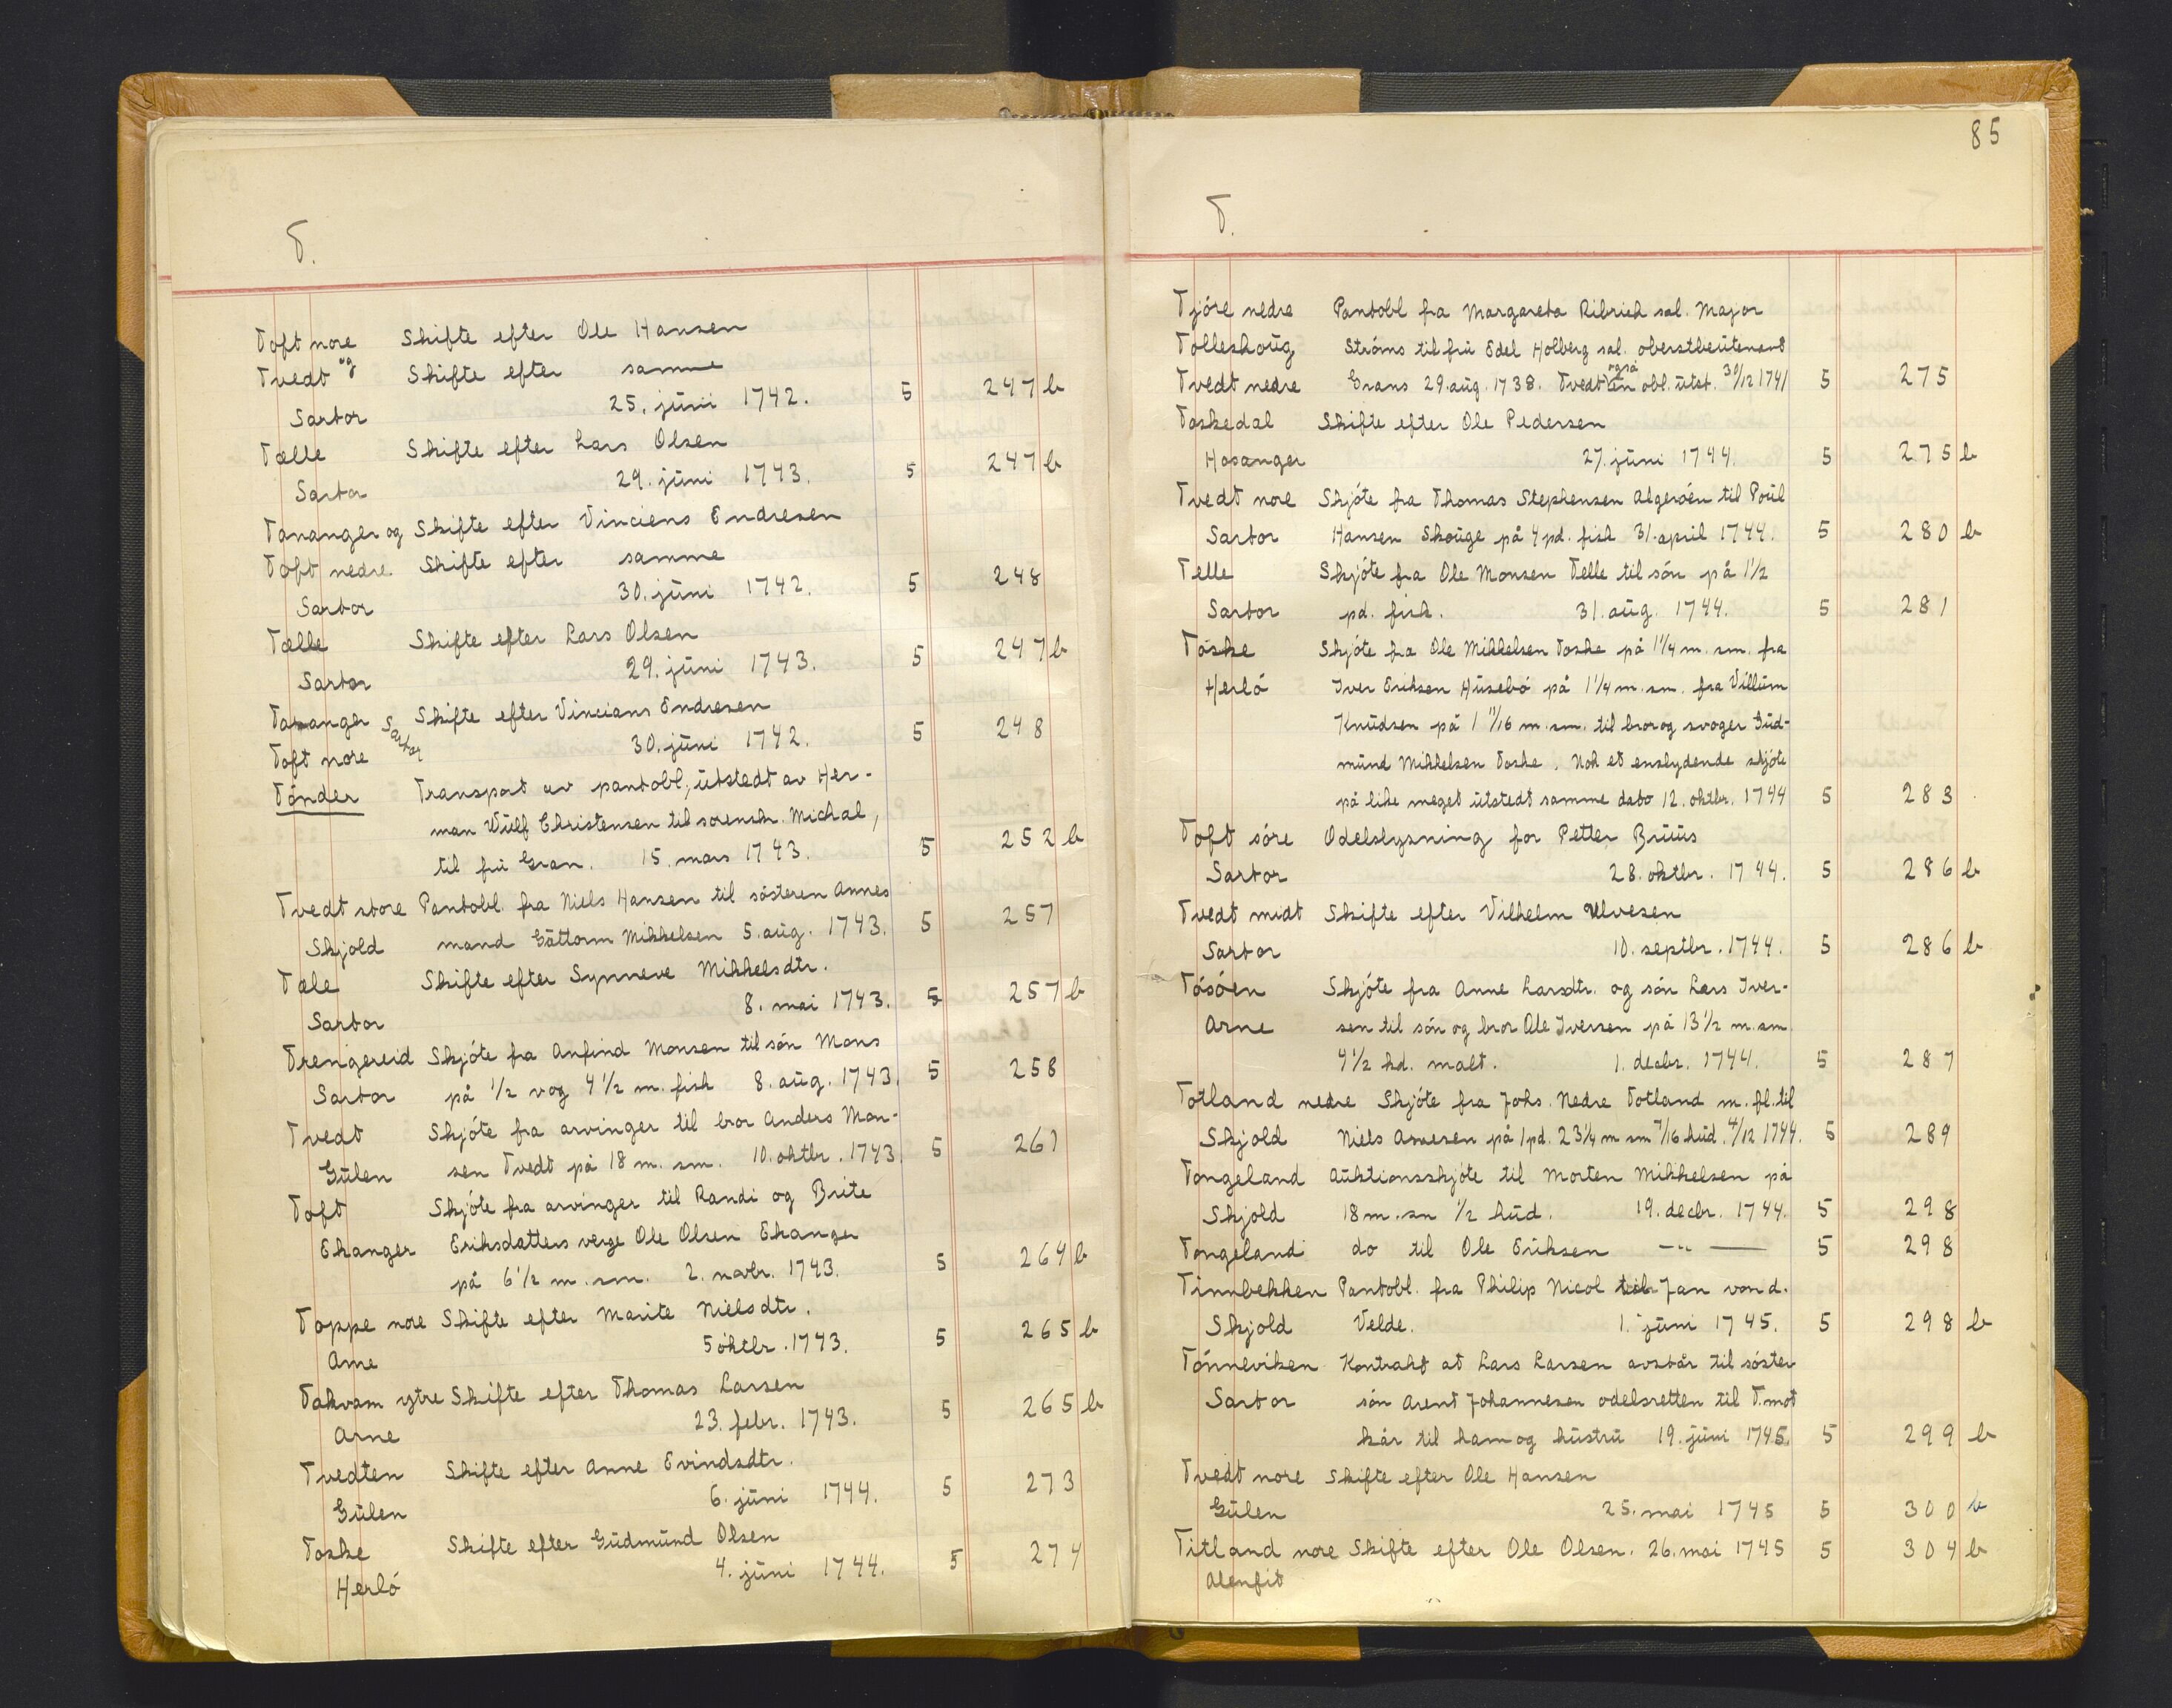 T.
Toft nore Skifte efter Ole Hansen
Tvedt og Skifte efter samme
Sartor 25. júni 1742. 5 247 b
Tælle Skifte efter Lars Olsen
Sartor 29. júni 1743. 5 247 b
Tananger og Skifte efter Vinciens Endresen
Toft nedre Skifte efter samme
Sartor 30. júni 1742. 5 248
Tælle Skifte efter Lars Olsen
Sartor 29. júni 1743. 5 247 b
Tananger Sartor Skifte efter Vincians Endresen
Toft nore 30. júni 1742. 5 248
Tónder Transport av pantobl, útstedt av Her-
man Wúlf Christensen til sorenskr. Michal,
til frú Gran. 15. mars 1743. 5 252 b
Tvedt store Pantobl. fra Niels Hansen til sósteren Annes
Skjold mand Gúttorm Mikkelsen 5. aúg. 1743. 5 257
Tæle Skifte efter Synneve Mikkelsdtr.
Sartor 8. mai 1743. 5 257 b
Trengereid Skjóte fra Anfind Monsen til són Mons
Sartor på 1/2 vog 4 1/2 m. fisk 8. aúg. 1743. 5 258
Tvedt Skjóte fra arvinger til bror Anders Mon-
Gúlen sen Tvedt på 18 m. sm. 10. oktbr. 1743. 5 261
Toft Skjóte fra arvinger til Randi og Brite
Ekanger Eriksdatters verge Ole Olsen Ekanger
på 6 1/2 m. sm. 2. novbr. 1743. 5 264 b
Toppe nore Skifte efter Marite Nielsdtr.
Arne 5 oktbr. 1743. 5 265 b
Takvam ytre Skifte efter Thomas Larsen
Arne 23. febr. 1743. 5 265 b
Tvedten Skifte efter Anne Evindsdtr.
Gúlen 6. júni 1744. 5 273
Toske Skifte efter Gúdmúnd Olsen
Herló 4. júni 1744. 5 274
85
T.
Tjóre nedre Pantobl fra Margareta Ribrich sal. Major
Tolleshoúg Stróms til frú Edel Holberg sal. oberstleútenant
Tvedt nedre Grans 29. aúg. 1738. Tvedt også en obl. útst. 30/12 1741 5 275
Toskedal Skifte efter Ole Pedersen
Hosanger 27. júni 1744. 5 275 b
Tvedt nore Skjóte fra Thomas Stephensen Algeróen til Poúl
Sartor Hansen Skoúge på 4 pd. fisk 31. april 1744. 5 280 b
Telle Skjóte fra Ole Monsen Telle til són på 1 1/2
Sartor pd. fisk. 31. aúg. 1744. 5 281
Toske Skjóte fra Ole Mikkelsen Toske på 1 1/4 m. sm. fra
Herló Iver Eriksen Húsebó på 1 1/4 m. sm. fra Villúm
Knúdsen på 1 11/16 m. sm. til bror og svoger Gúd-
múnd Mikkelsen Toske. Nok et enslydende skjóte
på like meget útstedt samme dato 12. oktbr. 1744 5 283
Toft sóre Odelslysning for Petter Brúús
Sartor 28. oktbr. 1744. 5 286 b
Tvedt midt Skifte efter Vilhelm Ulvesen
Sartor 10. septbr. 1744. 5 286 b
Tósóen Skjóte fra Anne Larsdtr. og són Lars Iver-
Arne sen til són og bror Ole Iversen på 13 1/2 m. sm.
4 1/2 hd. malt. 1. decbr. 1744. 5 287
Totland nedre Skjóte fra Johs. Nedre Totland m. fl. til
Skjold Niels Arnesen på 1 pd. 23 1/4 m sm 7/16 húd. 4/12 1744. 5 289
Tongeland Aúktionsskjóte til Morten Mikkelsen på
Skjold 18 m. sm 1/2 húd. 19. decbr. 1744. 5 298
Tongeland do til Ole Eriksen —"— 5 298
Tinnbekken Pantobl. fra Philip Nicol til Jan von d.
Skjold Velde. 1. júni 1745. 5 298 b
Tónneviken Kontrakt at Lars Larsen avstår til sóster
Sartor són Arent Johannesen odelsretten til T. mot
kår til ham og hústrú 19. júni 1745. 5 299 b
Tvedt nore Skifte efter Ole Hansen
Gúlen 25. mai 1745 5 300 b
Titland nore Skifte efter Ole Olsen. 26. mai 1745 5 304 b
Alenfit